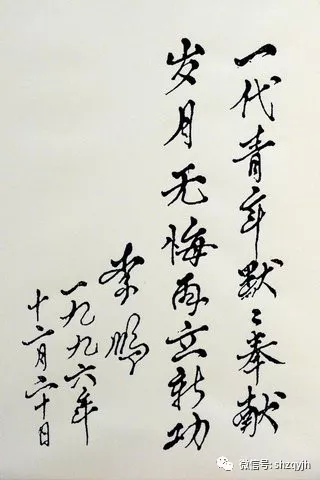 一代青年默々奉献
岁月无悔再立新功
李鹏
一九九六年
十二月二十日
微信号: shzqyjh